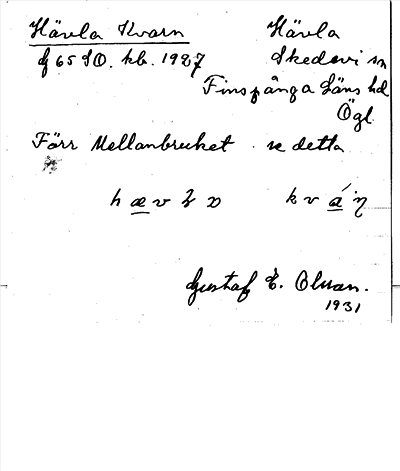 Hävla Kvarn Hävla
f 65 SO. kb. 1927 Skedevi sn
Finspånga Läns hd
Ögl.
Förr Mellanbruket se detta
h æ v l a k v á η
Gustaf E. Olsson.
1931